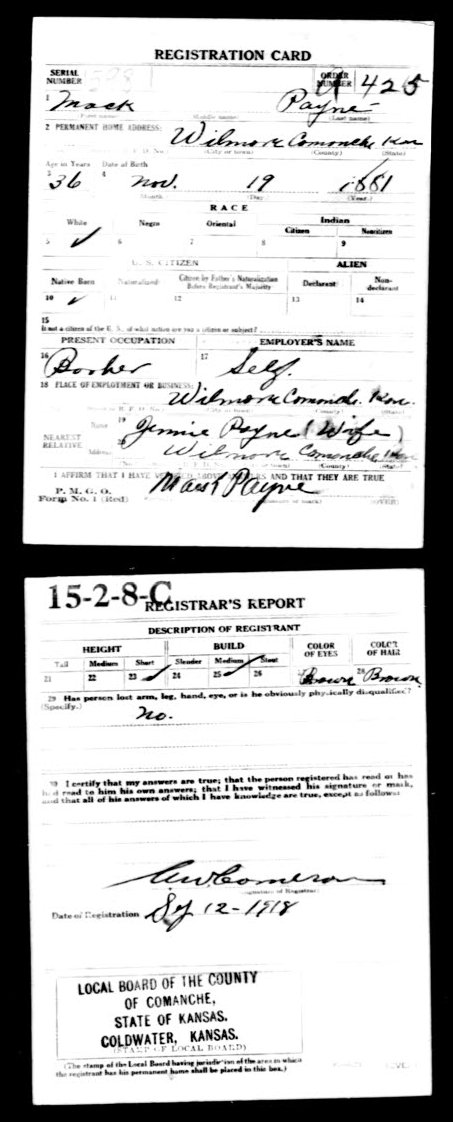 REGISTRATION CARD
SERIAL NUMBER 528 ORDER NUMBER A 425
1 Mack Payne
(First name) (Middle name) (Last name)
2 PERMANENT HOME ADDRESS: Wilmore Comanche Kan
(City or town) (County) (State)
Age in Years Date of Birth
3 36 4 Nov. 19 1881
Month (Day) (Year)
RACE
White Negro Oriental Indian
Citizen Noncitizen
5 ✓ 6 7 8 9
U. S. CITIZEN ALIEN
Native Born Naturalized Citizen by Father's Naturalization Before Registrant's Majority Declarant Non-declarant
10 ✓ 11 12 13 14
15
If not a citizen of the U. S., of what nation are you a citizen or subject?
PRESENT OCCUPATION EMPLOYER'S NAME
16 17 Self
18 PLACE OF EMPLOYMENT OR BUSINESS:
Wilmore Comanch. Kan.
(City or town) (County) (State)
NEAREST RELATIVE Name 19 Jennie Payne (Wife)
Address 20 Wilmore Comanche Kan
(No.) (County) (State)
I AFFIRM THAT I HAVE VERIFIED ABOVE ANSWERS AND THAT THEY ARE TRUE
P. M. G. O.
Form No. 1 (Red) Mack Payne
(OVER)
15-2-8-C
REGISTRAR'S REPORT
DESCRIPTION OF REGISTRANT
HEIGHT BUILD COLOR OF EYES COLOR OF HAIR
Tall Medium Short Slender Medium Stout
21 22 23 ✓ 24 25 ✓ 26 27 Brown 28 Brown
29 Has person lost arm, leg, hand, eye, or is he obviously physically disqualified?
(Specify.)
No.
30 I certify that my answers are true; that the person registered has read or has
had read to him his own answers; that I have witnessed his signature or mark,
and that all of his answers of which I have knowledge are true, except as follows:
CW Cameron
(Signature of Registrar)
Date of Registration Sep 12-1918
LOCAL BOARD OF THE COUNTY
OF COMANCHE,
STATE OF KANSAS.
COLDWATER, KANSAS.
(STAMP OF LOCAL BOARD)
(The stamp of the Local Board having jurisdiction of the area in which
the registrant has his permanent home shall be placed in this box.)